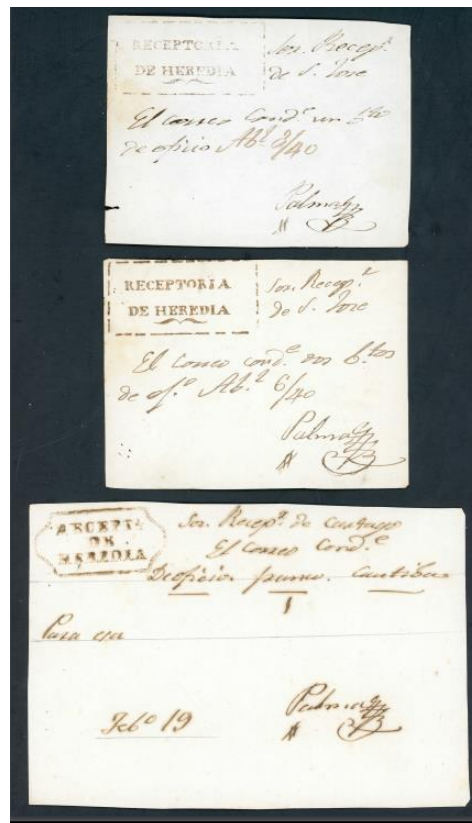 RECEPTORIA
DE HEREDIA
Sor. Recepr.
de S. Jose
El correo Conde. un
de oficio Abl. /40
Palma
RECEPTORIA
DE HEREDIA
Sor. Recepr.
de S. Jose
El Correo conde. dos
de ofo. Abl. 6/40
Palma
RECEPTA
DE
HEREDIA
Sor. Recepr. de Cartago
El Correo Conde.
De oficio
1
Para esa
Febo 19
Palma